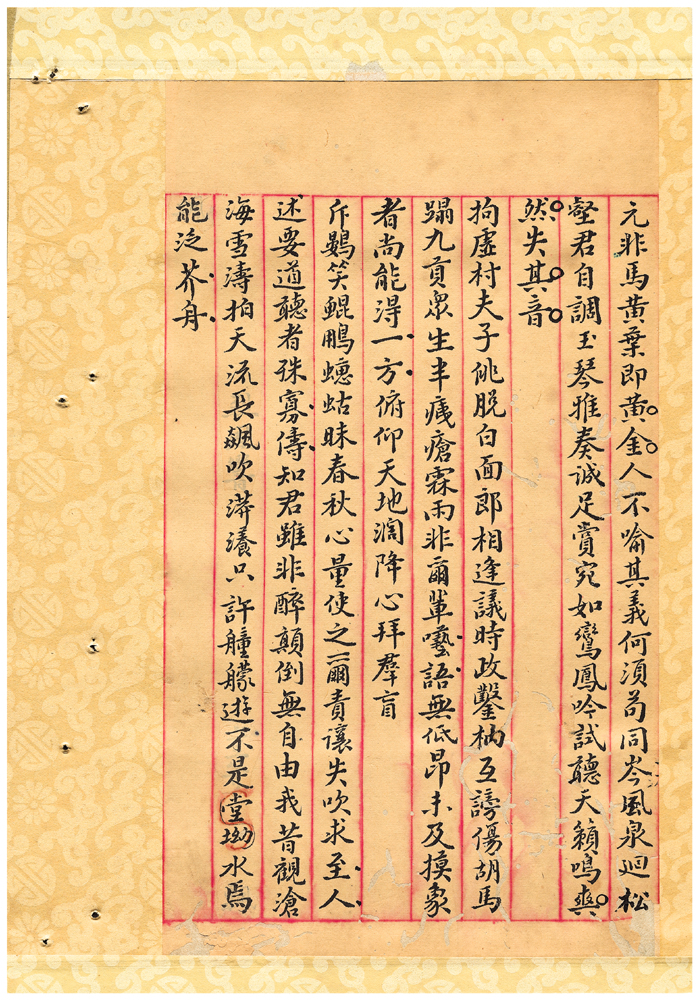 元非馬黃葉即黃金人不喻其義何須苟同岑風泉迴松
壑君自調玉琴雅奏誠足賞宛如鸞鳳吟試聽天籟鳴爽
然失其音
拘虛村夫子佻脫白面郎相逢議時政鑿枘互謗傷胡馬
蹋九貢眾生半痍瘡霖雨非爾輩囈語無低昂未及摸象
者尚能得一方俯仰天地濶降心拜羣盲
斥鷃笑鯤鵬蟪蛄昧春秋心量使之爾責讓失吹求至人
述要道聽者殊寡儔知君雖非醉顛倒無自由我昔觀滄
海雪濤拍天流長飆吹漭瀁只許艟艨遊不是堂坳水焉
能泛芥舟